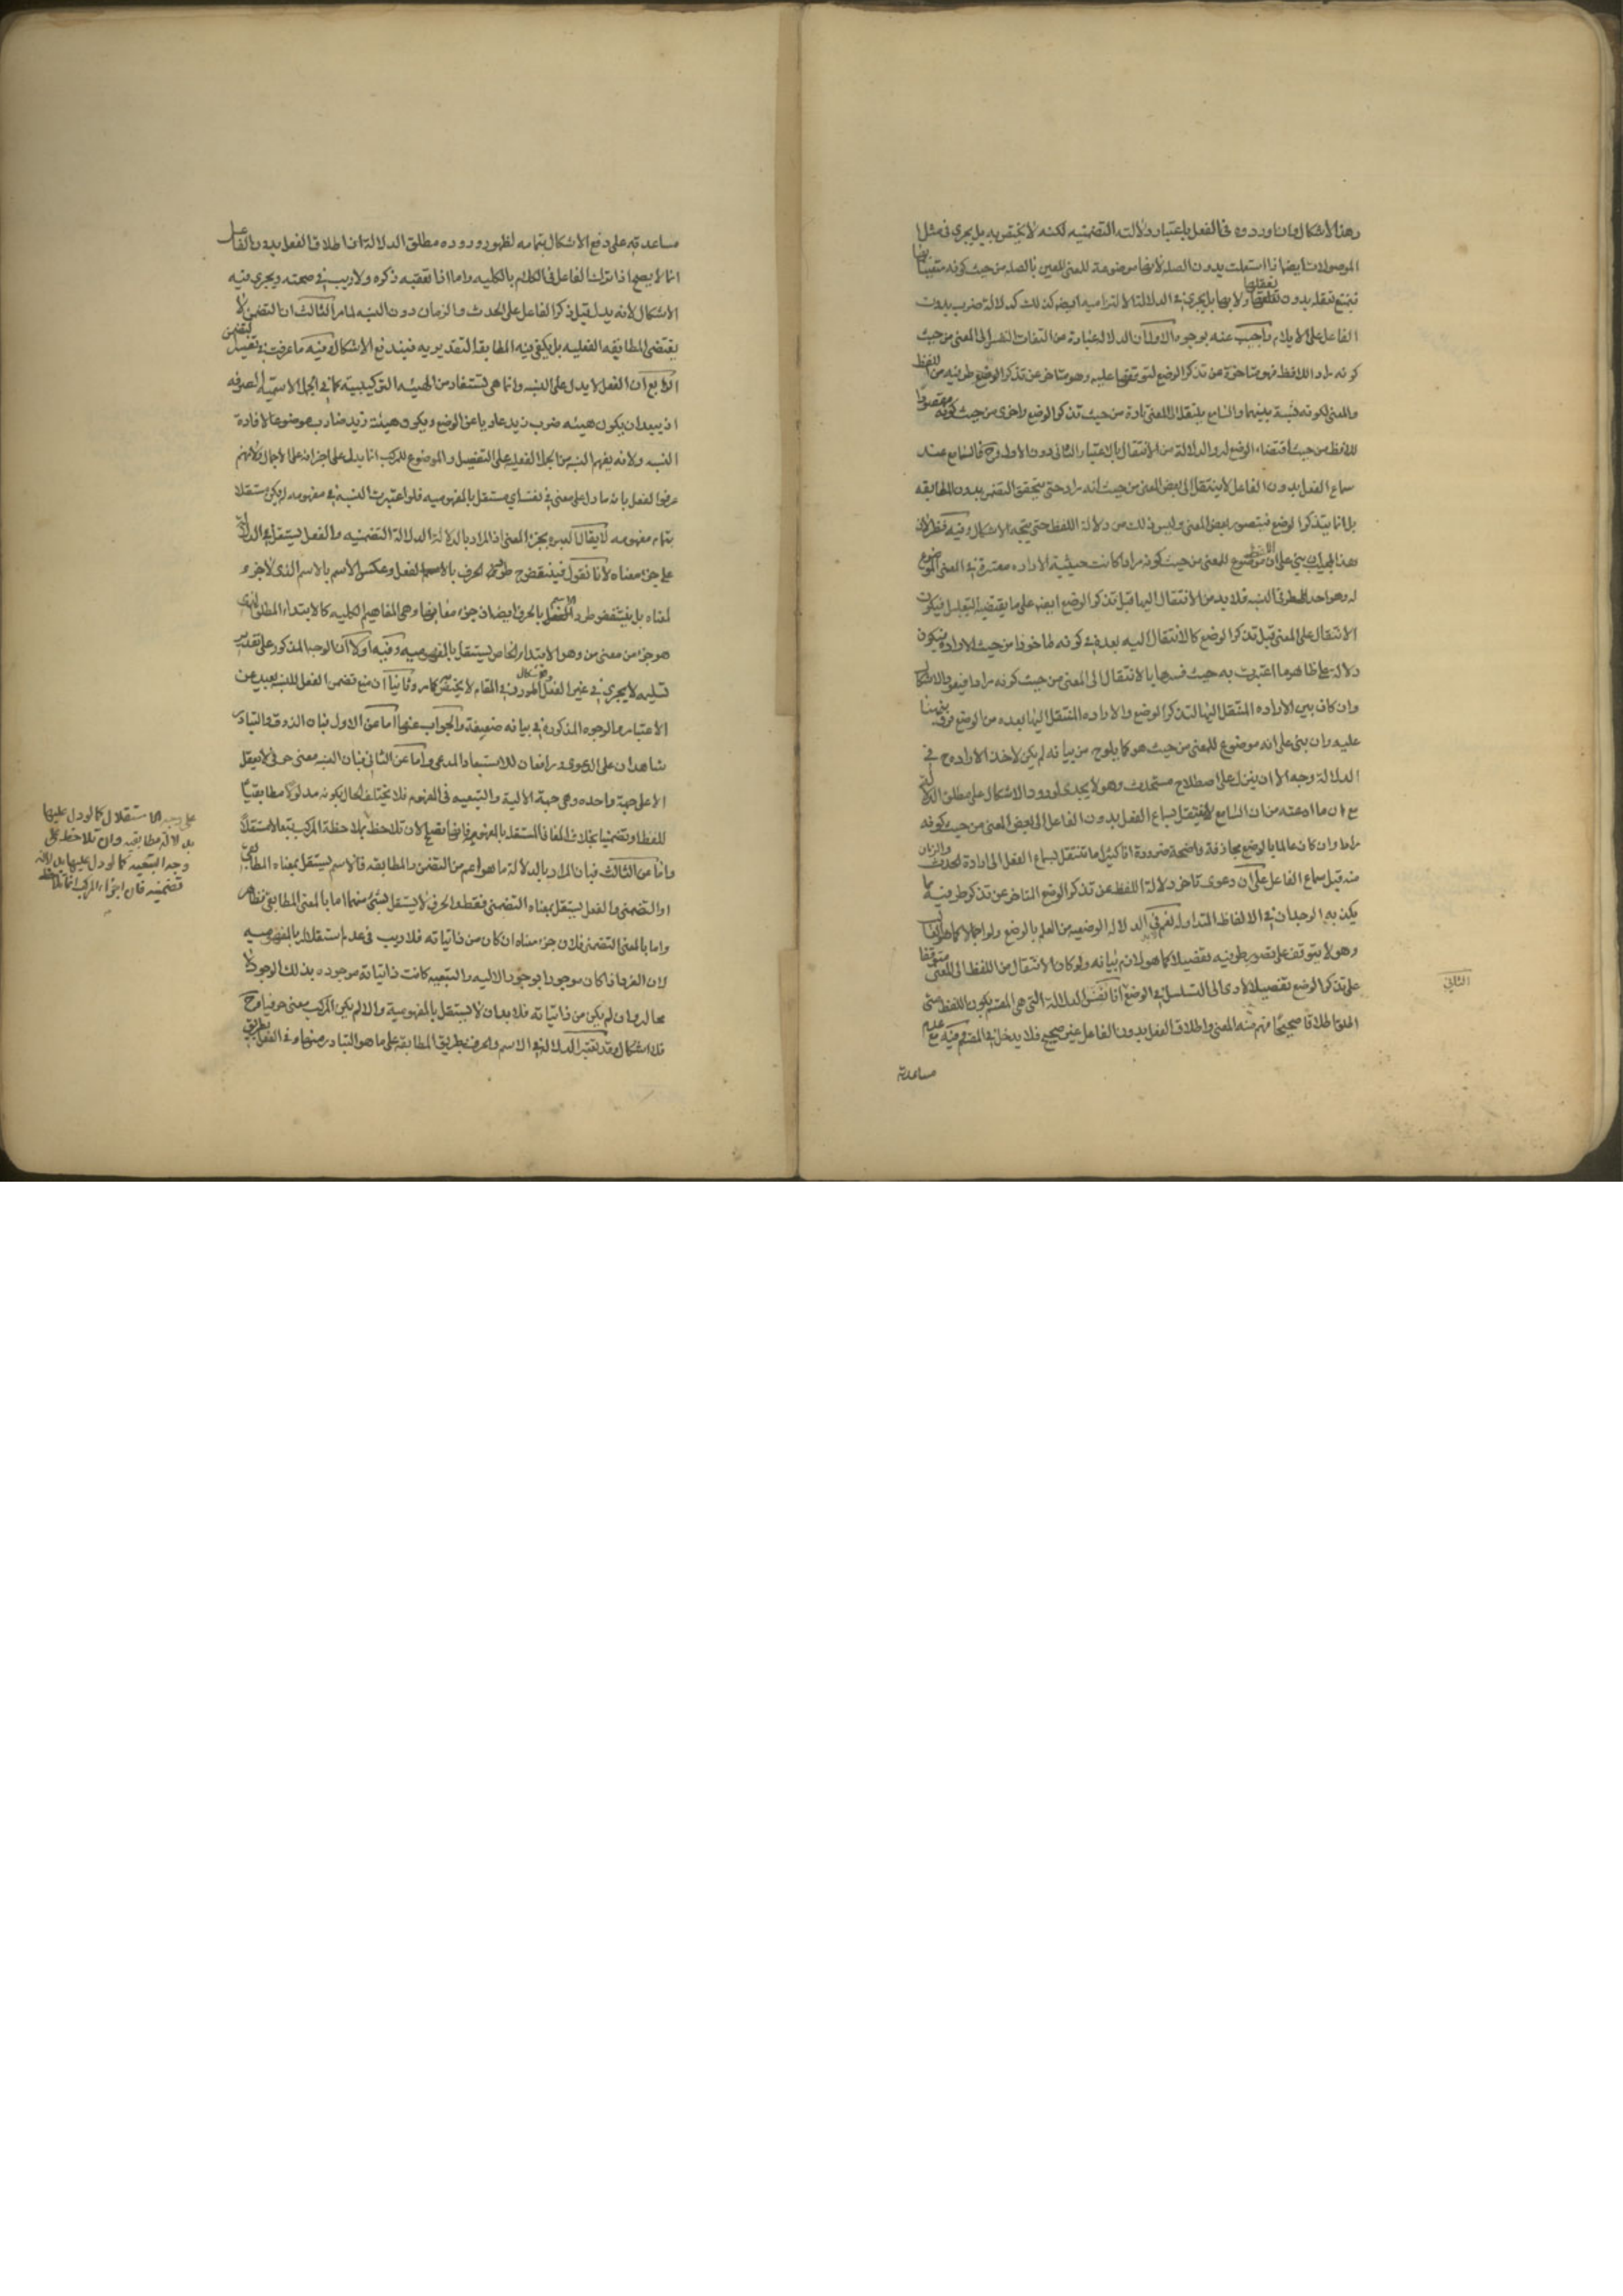 وهذا الاشكال وان اورد وه في الفعل باعتبار دلالته التضمنيه لكنه لا يختص به بل يجري في مثل
الموصولات ايضا اذا استعملت بدون الصله لانها موضوعة للمعنى المعين بالصله من حيث كونه متعينا بها
فيمتنع تعقله بدون تعقلها ولا بها بل يجري في الدلالة الالتزاميه ايضا كذلك كدلالة ضرب بدون
الفاعل على الايلام واجيب عنه بوجوه الاول ان الدلالة عبارة من التفات النفس الى المعنى من حيث
كونه مراد اللافظ فهو متاخرة عن تذكر الوضع لتوقفها عليه وهو متاخر عن تذكر الوضع طرفيه من اللفظ
والمعنى لكونه نسبة بينهما والسامع ينتقل الى المعنى تارة من حيث تذكر الوضع واخرى من حيث كونه مقصودا
للافظ من حيث اقتضاء الوضع له والدلالة من الانتقال بالاعتبار الثاني دون الاول وح فالسامع عند
سماع الفعل بدون الفاعل لا ينتقل الى بعض المعنى من حيث انه مراد حتى يتحقق التضمن بدون المطابقه
بل انما يتذكر الوضع فيتصور بعض المعنى وليس ذلك من دلالة اللفظ حتى يتجه الاشكال وفيه نظر لان
هذا الجواب ان بنى على ان اللفظ موضوع للمعنى من حيث كونه مرادا كانت حيثية الاراده معتبرة في المعنى الموضوع
له وهو احد طرفي النسبه فلا بد من الانتقال اليها قبل تذكر الوضع ايضا على ما يقتضيه التعليل فيكون
الانتقال على المعنى قبل تذكر الوضع كالانتقال اليه بعده في كونه ماخوذا من حيث الارادة فيكون
دلالة على ظاهر ما اعتبرت به حيث فسرها بالانتقال الى المعنى من حيث كونه مرادا فيعود الاشكال
وان كان بين الاراده المنتقل اليها لتذكر الوضع والاراده المنتقل اليها بعده من الوضع فرق بينهما
عليه وان بنى على انه موضوع للمعنى من حيث هو كما يلوح من بيانه لم يكن لاخذ الاراده ح في
الدلالة وجه الا ان ينزل على اصطلاح مستحدث وهو لا يجدي لورود الاشكال على مطلق الدلالة
مع ان ما ادعته من ان السامع لا ينتقل بسماع الفعل بدون الفاعل الى بعض المعنى من حيث كونه
مرادا وان كان عالما بالوضع مجازفة واضحة ضرورة انا كثيرا ما ننتقل بسماع الفعل الى ارادة الحدث والزمان
منه قبل سماع الفاعل على ان دعوى تاخر دلالة اللفظ عن تذكر الوضع المتاخر عن تذكر طرفيه مما
يكذب به الوجدان في الالفاظ المتداوله نعم في الدلالة الوضعيه من العلم بالوضع ولو اجمالا كما هو الغالب
وهو لا يتوقف على تصور طرفيه تفصيلا كما هو لازم بيانه ولو كان الانتقال من اللفظ الى المعنى متوقفا
على تذكر الوضع تفصيلا لادى الى التسلسل في الوضع الثاني انا نفسر الدلالة التي هي المقسم بكون اللفظ متى
اطلق اطلاقا صحيحا فهم منه المعنى واطلاق الفعل بدون الفاعل غير صحيح فلا يدخل في المقسم وفيه مع عدم
مساعدته
الثاني
مساعدته على دفع الاشكال بتمامه لظهور وروده مطلق الدلالة ان اطلاق الفعل بدون الفاعل
انما لا يصح اذا ترك الفاعل في الكلام بالكليه واما اذا تعقبه ذكره ولا ريب في صحته ويجري فيه
الاشكال لانه يدل قبل ذكر الفاعل على الحدث والزمان دون النسبه لما مر الثالث ان التضمن لا
يقتضي المطابقه الفعليه بل يكفي فيه المطابقة التقديريه فيندفع الاشكال وفيه ما عرفت في تفسير التضمن
الرابع ان الفعل لا يدل على النسبه وانما هي تستفاد من الهيئه التركيبيه كما في الجمل الاسميه
اذ يبعد ان يكون هيئه ضرب زيد عاريا عن الوضع ويكون هيئة زيد ضارب موضوعا لافادة
النسبه ولانه يفهم النسبه من الجمل الفعليه على التفصيل والموضوع للمركب انما يدل على اجزائه على الاجمال ولانهم
عرفوا الفعل بانه ما دل على معنى في نفسه اي مستقل بالمفهوميه فلو اعتبرت النسبة في مفهومه لم يكن مستقلا
بتمام مفهومه لا يقال العبره بجزء المعنى اذ المراد بالدلالة الدلالة التضمنيه والفعل يستقل في الدلالة
على جزء معناه لانا نقول فينتقض ح طرد الحرف بالفعل وعكس الاسم بالاسم الذي لا جزء
لمعناه بل ينتقض طرد الفعل بالحرف ايضا لان جزء معانيها وهي المفاهيم الكليه كالابتداء المطلق الذي
هو جزء من معنى من وهو الابتداء الخاص يستقل بالمفهوميه وفيه اولا ان الوجه المذكور على تقدير
تسليمه لا يجري في غير الفعل والاشكال المورد في المقام لا يختص به كما مر وثانيا ان منع تضمن الفعل للنسبه بعيد عن
الاعتبار والوجوه المذكوره في بيانه ضعيفة والجواب عنها اما عن الاول فبان الذوق والتبادر
شاهدان على الدعوى ورافعان للاستبعاد المدعى واما عن الثاني فبان النسبه معنى حرفي لا يعقل
الا على جهة واحده وهي جهة الاليه والتبعيه في المفهوم فلا يختلف الحال بكونه مدلولا مطابقيا
للفظ او تضمنيا بخلاف المعاني المستقله بالمفهوم فانها تصلح لان تلاحظ بملاحظة المركب تبعا لا مستقلا
واما عن الثالث فبان المراد بالدلالة ما هو اعم من التضمن والمطابقه فالاسم يستقل بمعناه المطابقي
او التضمني والفعل يستقل بمعناه التضمني فقط والحرف لا يستقل بشيء منهما اما بالمعنى المطابقي فظاهر
واما بالمعنى التضمني فلان جزء معناه ان كان من ذاتياته فلا ريب في عدم استقلاله بالمفهوميه
لان الفرد اذا كان موجودا بوجود الاليه والتبعيه كانت ذاتياته موجوده بذلك الوجود لا
محاله وان لم يكن من ذاتياته فلا بد ان لا يستقل بالمفهومية والا لم يكن المركب معنى حرفيا وح
فلا اشكال وقد تعتبر الدلالة في الاسم والحرف بطريق المطابقه على ما هو المتبادر منها وفي الفعل بطريق
على وجه الاستقلال كما لو دل عليها
بدلالة مطابقيه وان تلاحظ على
وجه التبعيه كما لو دل عليها بدلالة
تضمنيه فان اجزاء المركب انما تلاحظ